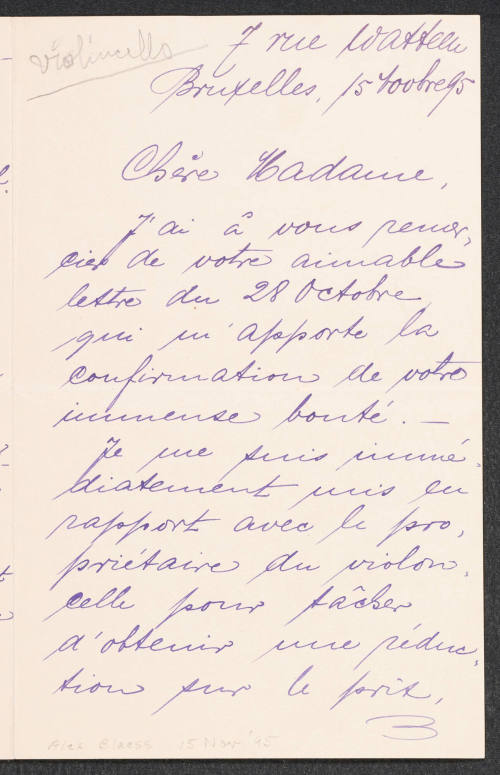 violincello
7 rue Watteeu
Bruxelles, 15 9bre 95
Chère Madame,
J'ai à vous remer-
cier de votre aimable
lettre du 28 Octobre
qui m'apporte la
confirmation de votre
immense bonté. —
Je me suis immé-
diatement mis en
rapport avec le pro-
priétaire du violon-
celle pour tâcher
d'obtenir une réduc-
tion sur le prix,
15 Nov '95